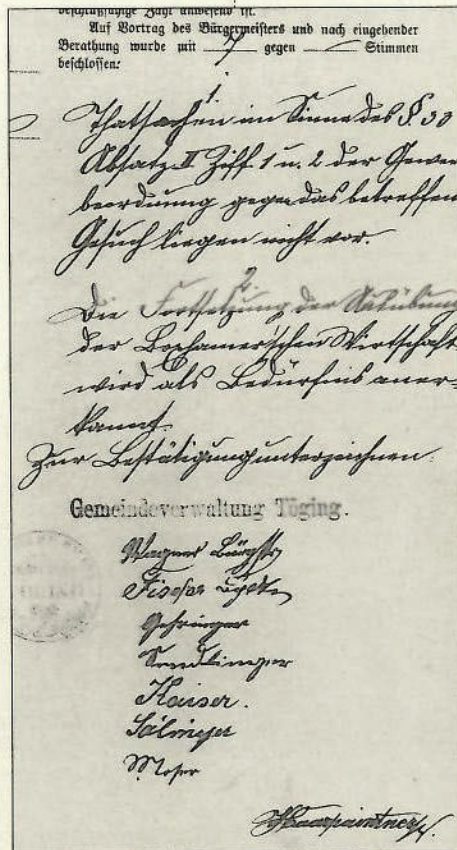 beschlußfähige Zahl anwesend ist.
Auf Vortrag des Bürgermeisters und nach eingehender
Berathung wurde mit 7 gegen — Stimmen
beschlossen:
1.
Thatsachen im Sinne des §. 33
Absatz II Ziff 1 u. 2 der Gewer
beordnung gegen das betreffen
Gesuch liegen nicht vor.
2.
Die Fortsetzung der Ausübung
der Lochamer'schen Wirtschaft
wird als Bedürfnis aner-
kannt.
Zur Bestätigung unterzeichnen.
Gemeindeverwaltung Töging.
Wagner Bürgstr
Fischer
Gehringer
Sendlinger
Kaiser.
Sälmeyer
Moser
Haarpaintner